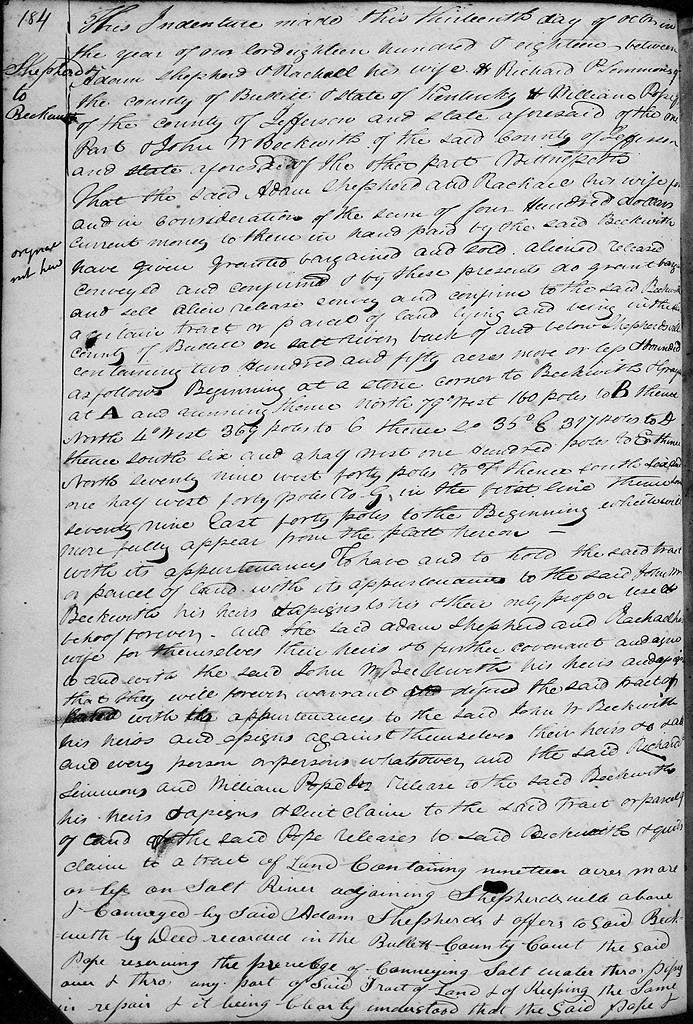 184
Shepherd
to
Beckwith
This Indenture made this thirteenth day of octr. in
the year of our lord eighteen hundred & eighteen between
Adam Shepherd & Rachall his wife & Richard Simmons of
the county of Bullitt & state of Kentucky & William Pope
of the county of Jefferson and state aforesaid of the one
Part & John W Beckwith of the said County of Jefferson
and state aforesaid of the other part Witnesseth
That the said Adam Shepherd and Rachael his wife for
and in consideration of the sum of four Hundred dollars
current money to them in hand paid by the said Beckwith
have given granted bargained and sold aliened released
conveyed and confirmed & by these presents do grant
and sell alien release convey and confirm to the said Beckwith
a certain tract or parcel of land lying and being in the
county of Bullitt on salt River back of and below Shepherdsville
containing two Hundred and fifty acres more or less & bounded
as follows Beginning at a stone corner to Beckwith & Gray
at A and running thence North 79° West 160 poles to B thence
North 4° West 369 poles to C thence So 35° E 317 poles to D
thence South six and a half west one hundred poles to E thence
North seventy nine west forty poles to F thence south six and
one half west forty poles to G, in the first line thence
seventy nine East forty poles to the Beginning which will
more fully appear from the platt hereon —
with its appurtenances To have and to hold the said tract
or parcel of land with its appurtenances to the said John W
Beckwith his heirs & assigns to his & their only proper use &
behoof forever. and the said Adam Shepherd and Rachael his
wife for themselves their heirs &c further covenant and agree
to and with the said John W Beckwith his heirs and assigns
that they will forever warrant and defend the said tract of
land with the appurtenances to the said John W Beckwith
his heirs and assigns against themselves their heirs &c & all
and every person or persons whatsoever, and the said Richard
Simmons and William Pope do release to the said Beckwith
his heirs & assigns & quit claim to the said tract or parcel
of land & the said Pope releases to said Beckwith & quits
claim to a tract of Land Containing nineteen acres more
or less on Salt River adjoining Shepherdsville above
& Conveyed by Said Adam Shepherd & others to Said Beck-
with by Deed recorded in the Bullitt County Court the Said
Pope reserving the priviledge of Conveying Salt water thro. pipes
over & thro. any part of Said Tract of Land & of Keeping the Same
in repair & it being Clearly understood that the Said Pope &